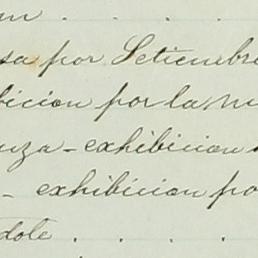 sa por Setienbre
bicion por la
nza - exhibicion
- exhibicion po
dole . . . .